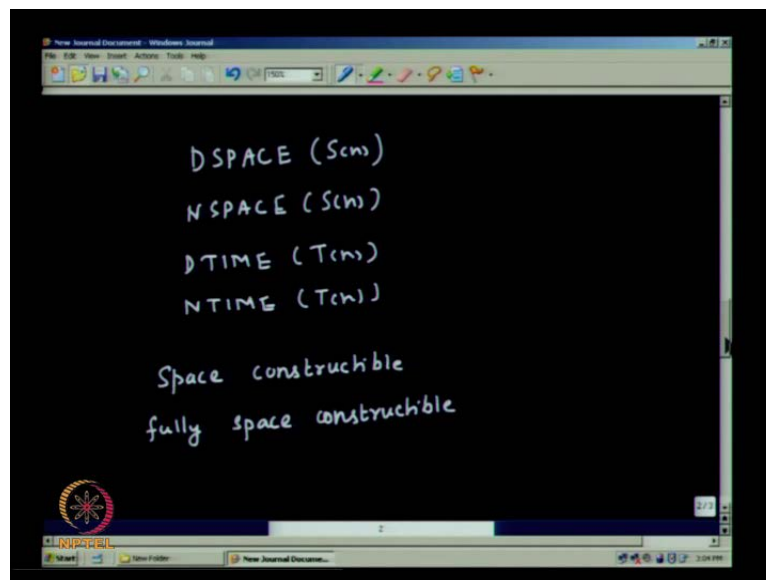 New Journal Document - Windows Journal
File Edit View Insert Actions Tools Help
150%
DSPACE (S(n))
NSPACE (S(n))
DTIME (T(n))
NTIME (T(n))
Space constructible
fully space constructible
2/3
2
NPTEL
Start
New Folder
New Journal Docume...
3:04 PM